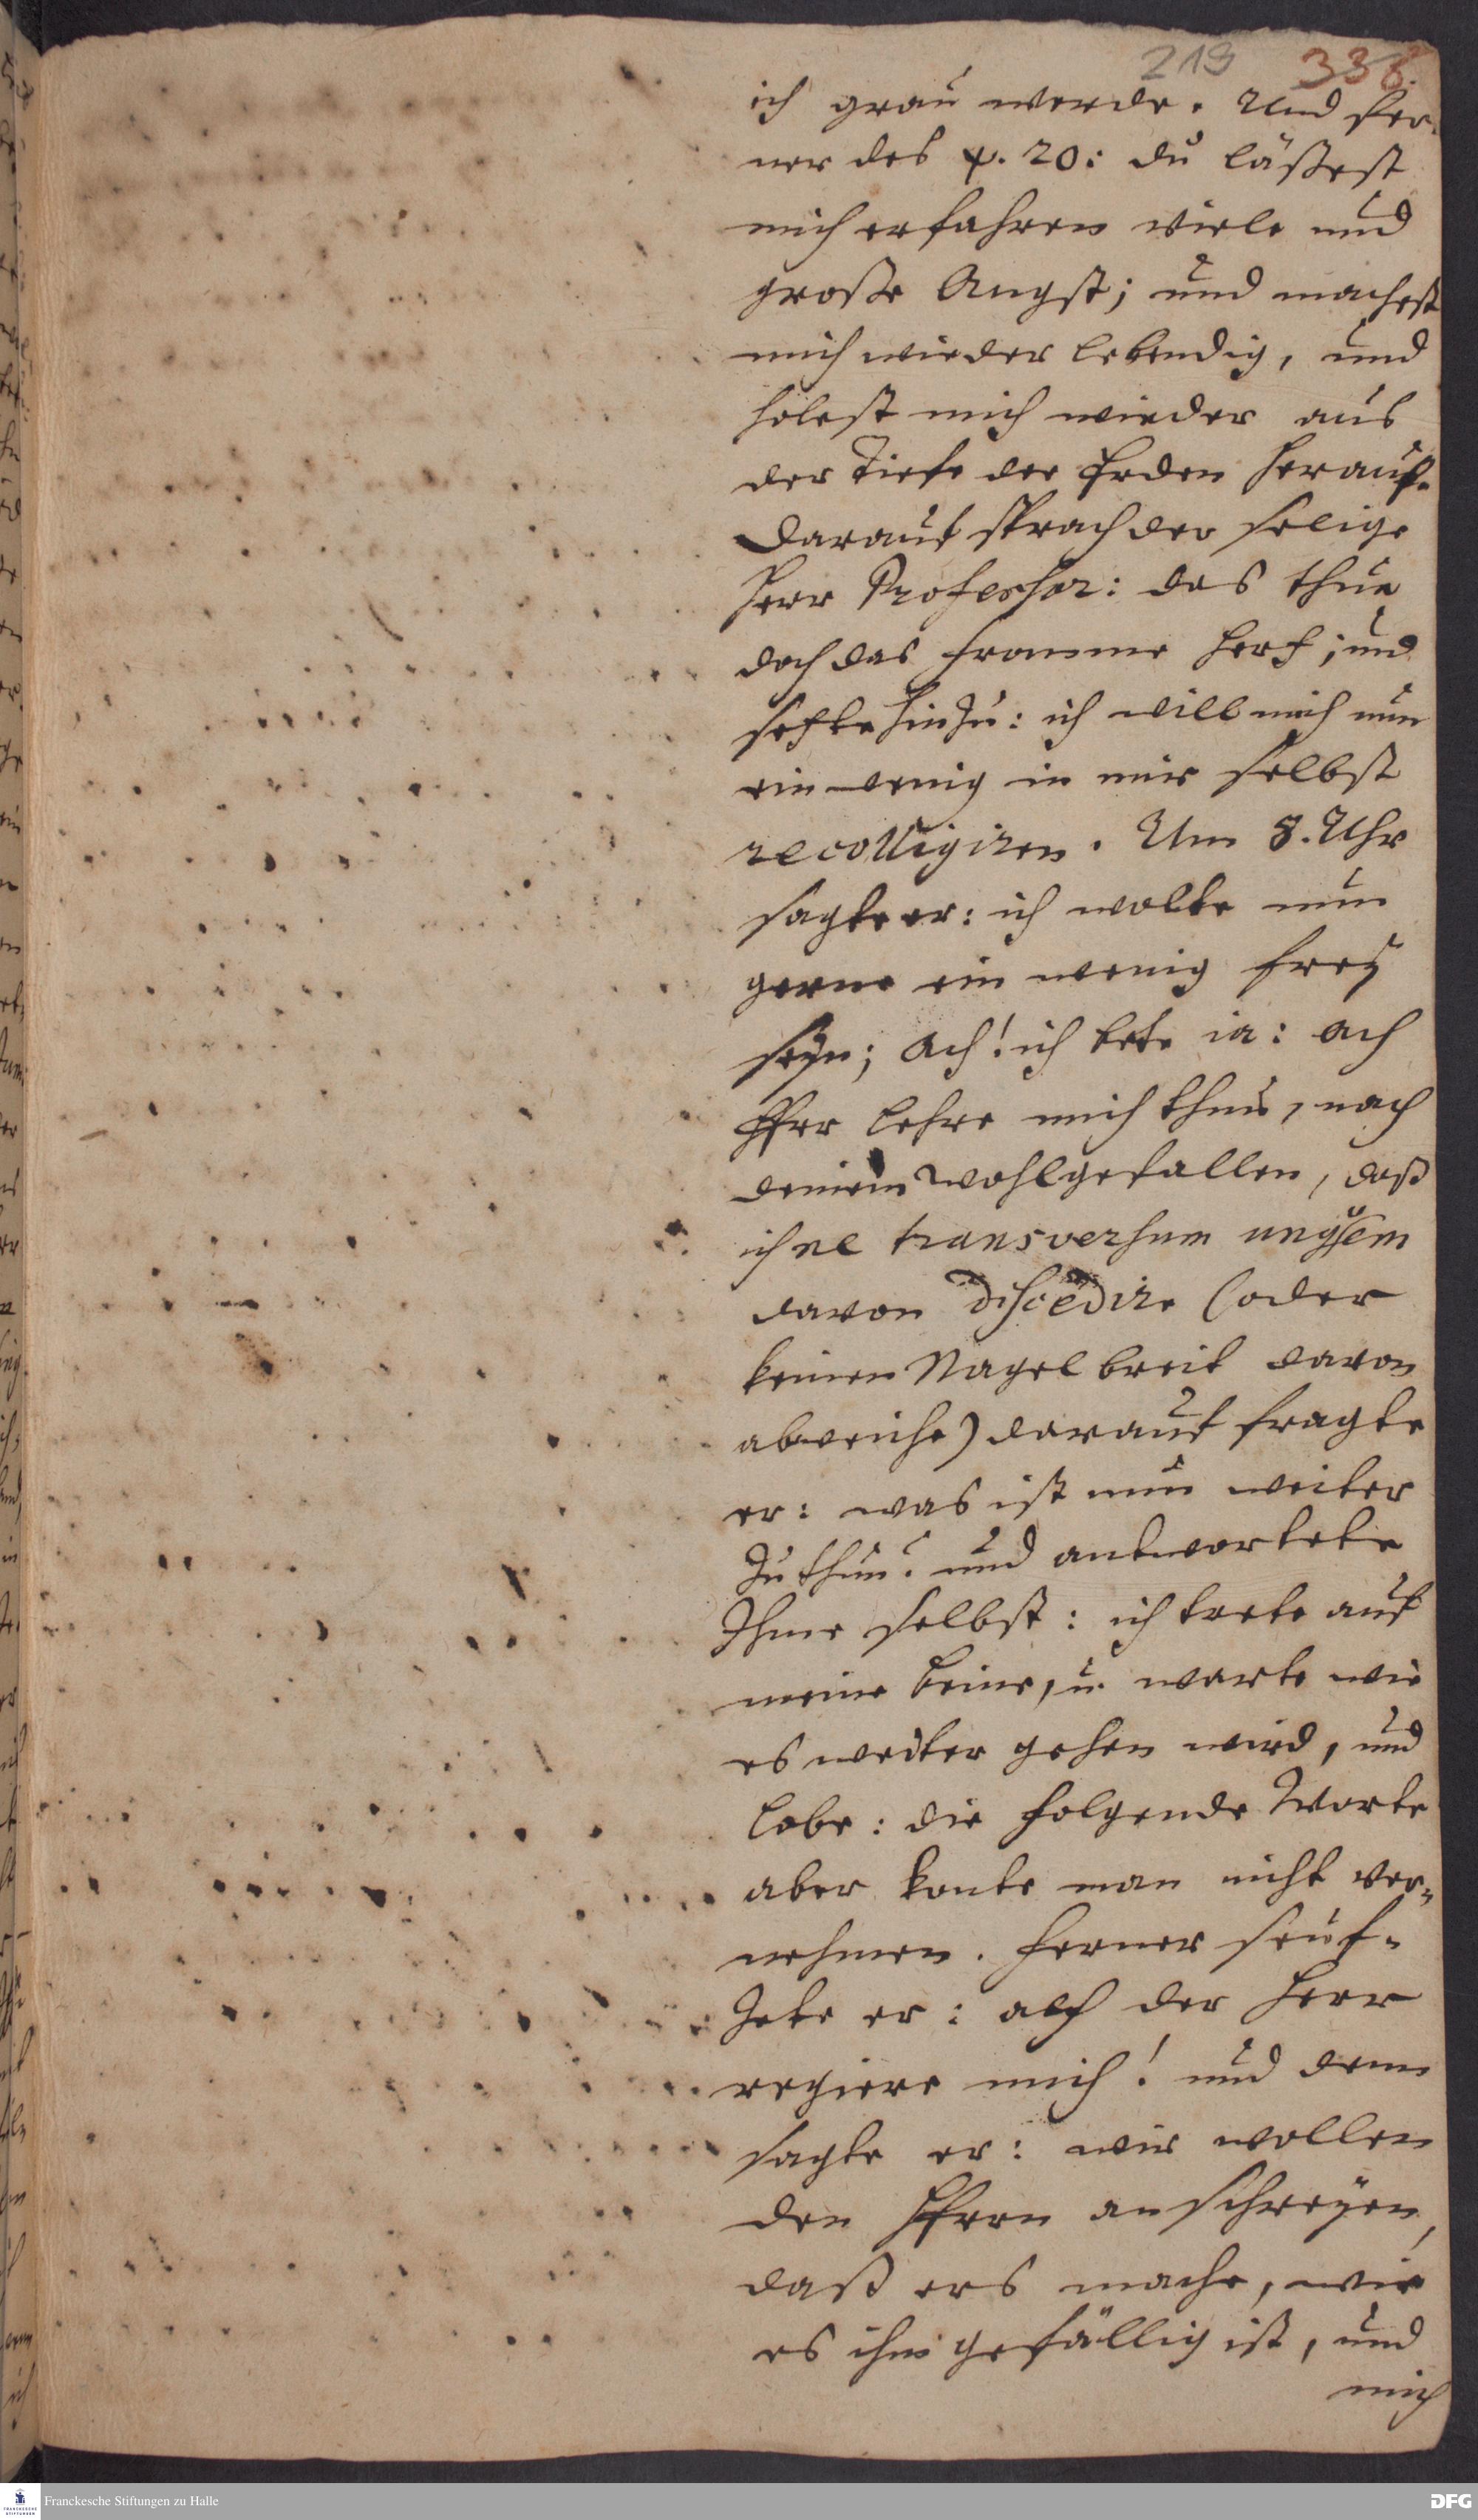 219 338.
ich grau werde. Und fer-
ner des v. 20: du läßest
mich erfahren viele und
große Angst; und machest
mich wieder lebendig, und
holest mich wieder aus
der Tiefe der Erden herauf.
Darauf sprach der selige
Herr Professor: das thue
doch das fromme Hertz; und
setzte hinzu: ich will mich nun
ein wenig in mir selbst
recolligiren. Um 8. Uhr
sagte er: ich wolte nun
gerne ein wenig frey
seyn; Ach! ich bete ia: ach
HErr lehre mich thun, nach
deinem Wohlgefallen, daß
ich ne transversum unguem
davon discedire (oder
keinen Nagel breit davon
abweiche) darauf fragte
er: was ist nun weiter
zu thun? und antwortete
Ihme selbst: ich trete auf
meine Beine, u. warte wie
es weiter gehen wird, und
lobe: die folgende Worte
aber konte man nicht ver-
nehmen. Ferner seuf-
zete er: ach der Herr
regiere mich! und denn
sagte er: wir wollen
den HErrn anschreyen,
daß ers mache, wie
es ihm gefällig ist, und
mich
Franckesche Stiftungen zu Halle
DFG